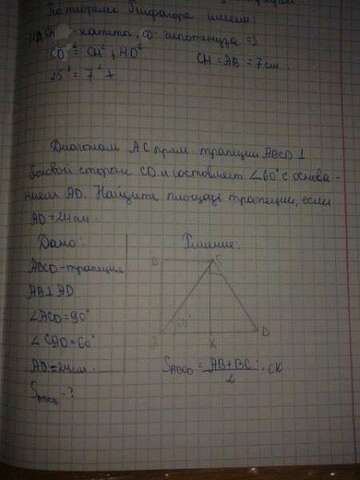 По теореме Пифагора имеем:
катеты, CD гипотенуза =>
CD² = CH² + HD² CH = AB = 7 см
25² = 7² +
Диагональ AC прям. трапеции ABCD ⊥
боковой стороне CD и составляет ∠60° с основа-
нием AD. Найдите площадь трапеции, если
AD = 24 см.
Дано: Решение.
ABCD - трапеция B C
AB ⊥ AD
∠ACD = 90°
∠CAD = 60° 60° D
K
AD = 24 см. S ABCD = AB + BC / 2 · CK
S ABCD - ?